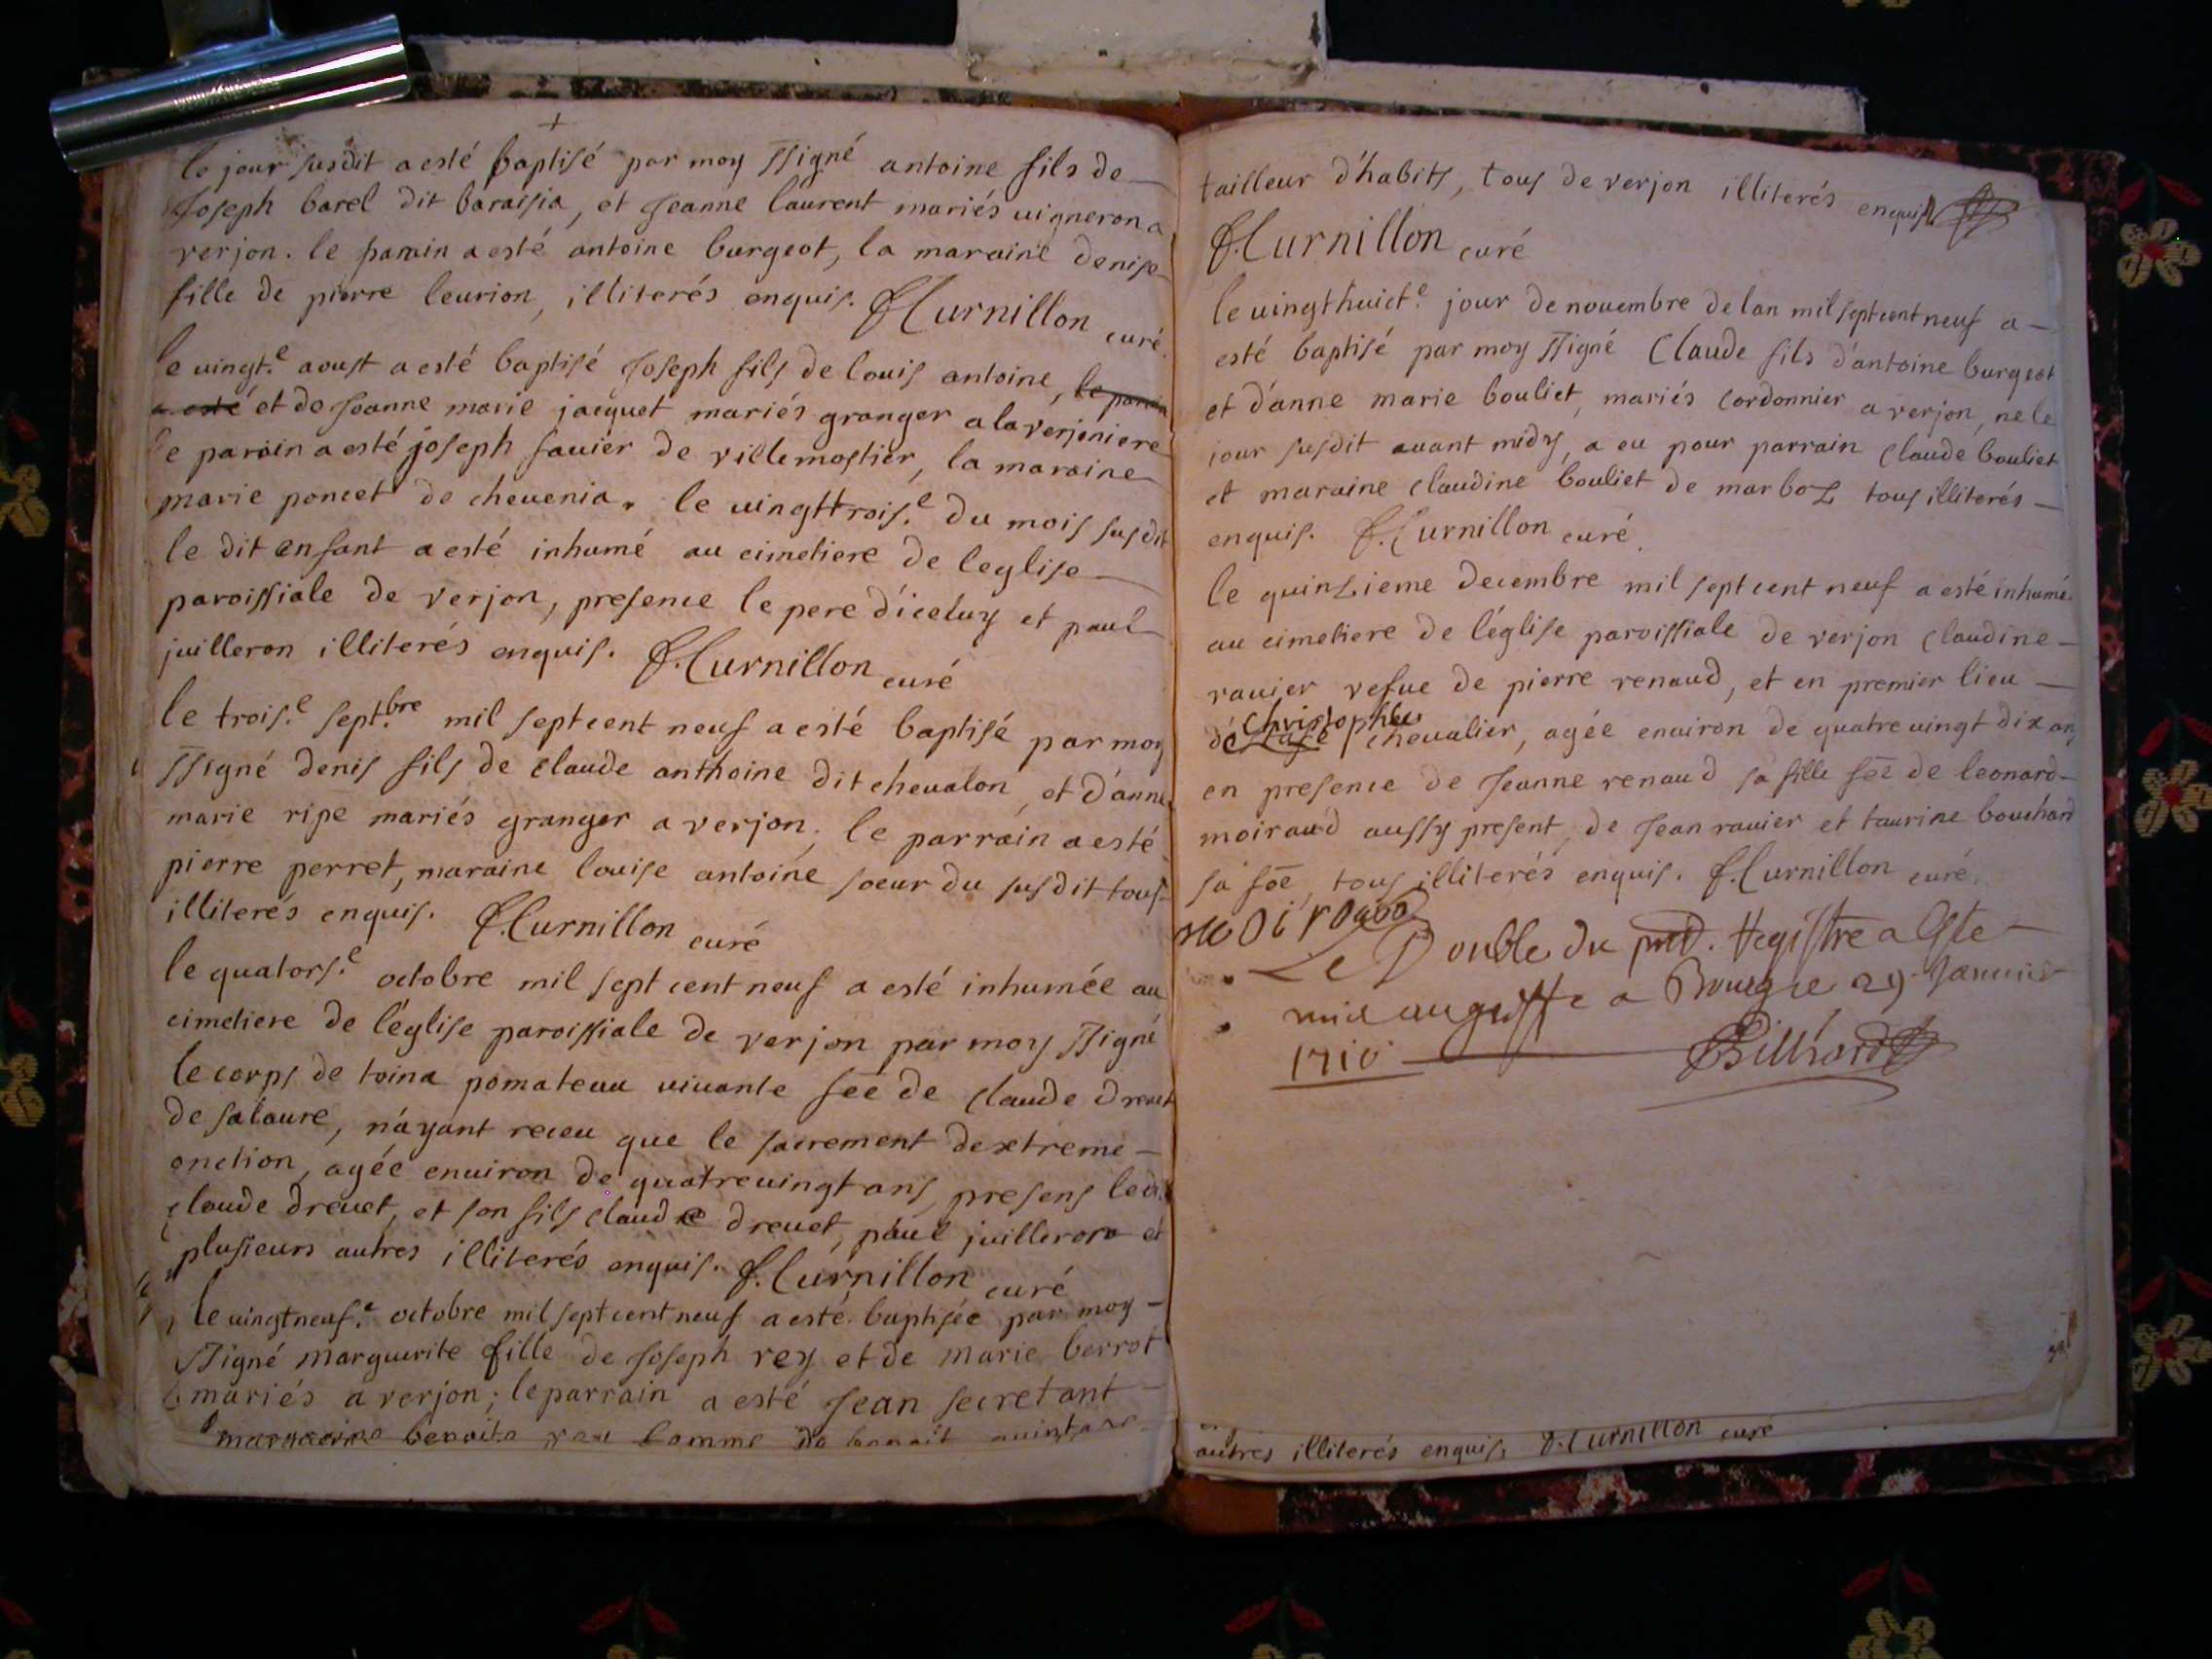 le jour susdit a esté baptisé par moy ssigné antoine fils de
Joseph barel dit baraissia, et Jeanne laurent mariés uigneron a
verjon. le parain a esté antoine burgeot, la maraine denise
fille de pierre leurion, illiterés enquis. f. Curnillon curé.
le uingt.e aoust a esté baptisé Joseph fils de louis antoine, le parain
a esté et de Jeanne marie jacquet mariés granger a la verjoniere
le parain a esté joseph sauier de villemostier, la maraine
marie poncet de cheuenia. le uingttrois.e du mois susdit
le dit enfant a esté inhumé au cimetiere de leglise
paroissiale de verjon, presence le pere d'iceluy et paul
juilleron illiterés enquis. f. Curnillon curé
le trois.e sept.bre mil sept cent neuf a esté baptisé par moy
ssigné denis fils de claude anthoine dit cheualon, et d'anne
marie ripe mariés granger a verjon. le parrain a esté
pierre perret, maraine louise antoine soeur du susdit tous
illiterés enquis. f. Curnillon curé
le quators.e octobre mil sept cent neuf a esté inhumée au
cimetiere de l'eglise paroissiale de verjon par moy ssigné
le corps de toina pomateau uiuante fée de claude dreuet
de salaure, n'ayant receu que le sacrement dextreme
onction, agée enuiron de quatreuingt ans, presens ledit
claude dreuet, et son fils claude dreuet, paul juilleron et
plusieurs autres illiterés enquis. f. Curnillon curé
le uingtneuf.e octobre mil sept cent neuf a esté baptisée par moy
ssigné marguerite fille de Joseph rey et de marie berrot
mariés a verjon; le parrain a esté Jean secretant
benoite femme de benoit
tailleur d'habits, tous de verjon illiterés enquis
f. Curnillon curé
le uingthuict.e jour de nouembre de lan mil sept cent neuf a
esté baptisé par moy ssigné Claude fils d'antoine burgeot
et d'anne marie bouliet, mariés cordonnier a verjon, ne le
jour susdit auant midy, a eu pour parrain claude bouliet
et maraine claudine bouliet de marboz tous illiterés
enquis. f. Curnillon curé.
le quinzieme decembre mil sept cent neuf a esté inhumé
au cimetiere de l'église paroissiale de verjon claudine
rauier vefue de pierre renaud, et en premier lieu
christophle
de cheualier, agée enuiron de quatre uingt dix ans
en presence de Jeanne renaud sa fille fée de leonard
moiraud aussy present, de Jean rauier et taurine bouchard
sa fée, tous illiterés enquis. f. Curnillon curé.
moiraud
Le Double du pred. Registre a Este
mis au greffe a Bourg ce 29 Januier
1710 Billiard
autres illiterés enquis. f. Curnillon curé